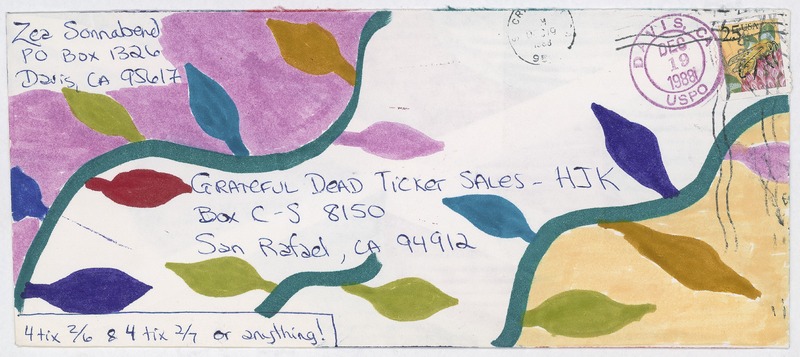 Zea Sonnabend
PO Box 1326
Davis, CA 95617
DAVIS, CA
DEC
19
1988
USPO
25 USA
GRATEFUL DEAD TICKET SALES - HJK
Box C-S 8150
San Rafael, CA 94912
4 tix 2/6 & 4 tix 2/7 or anything!